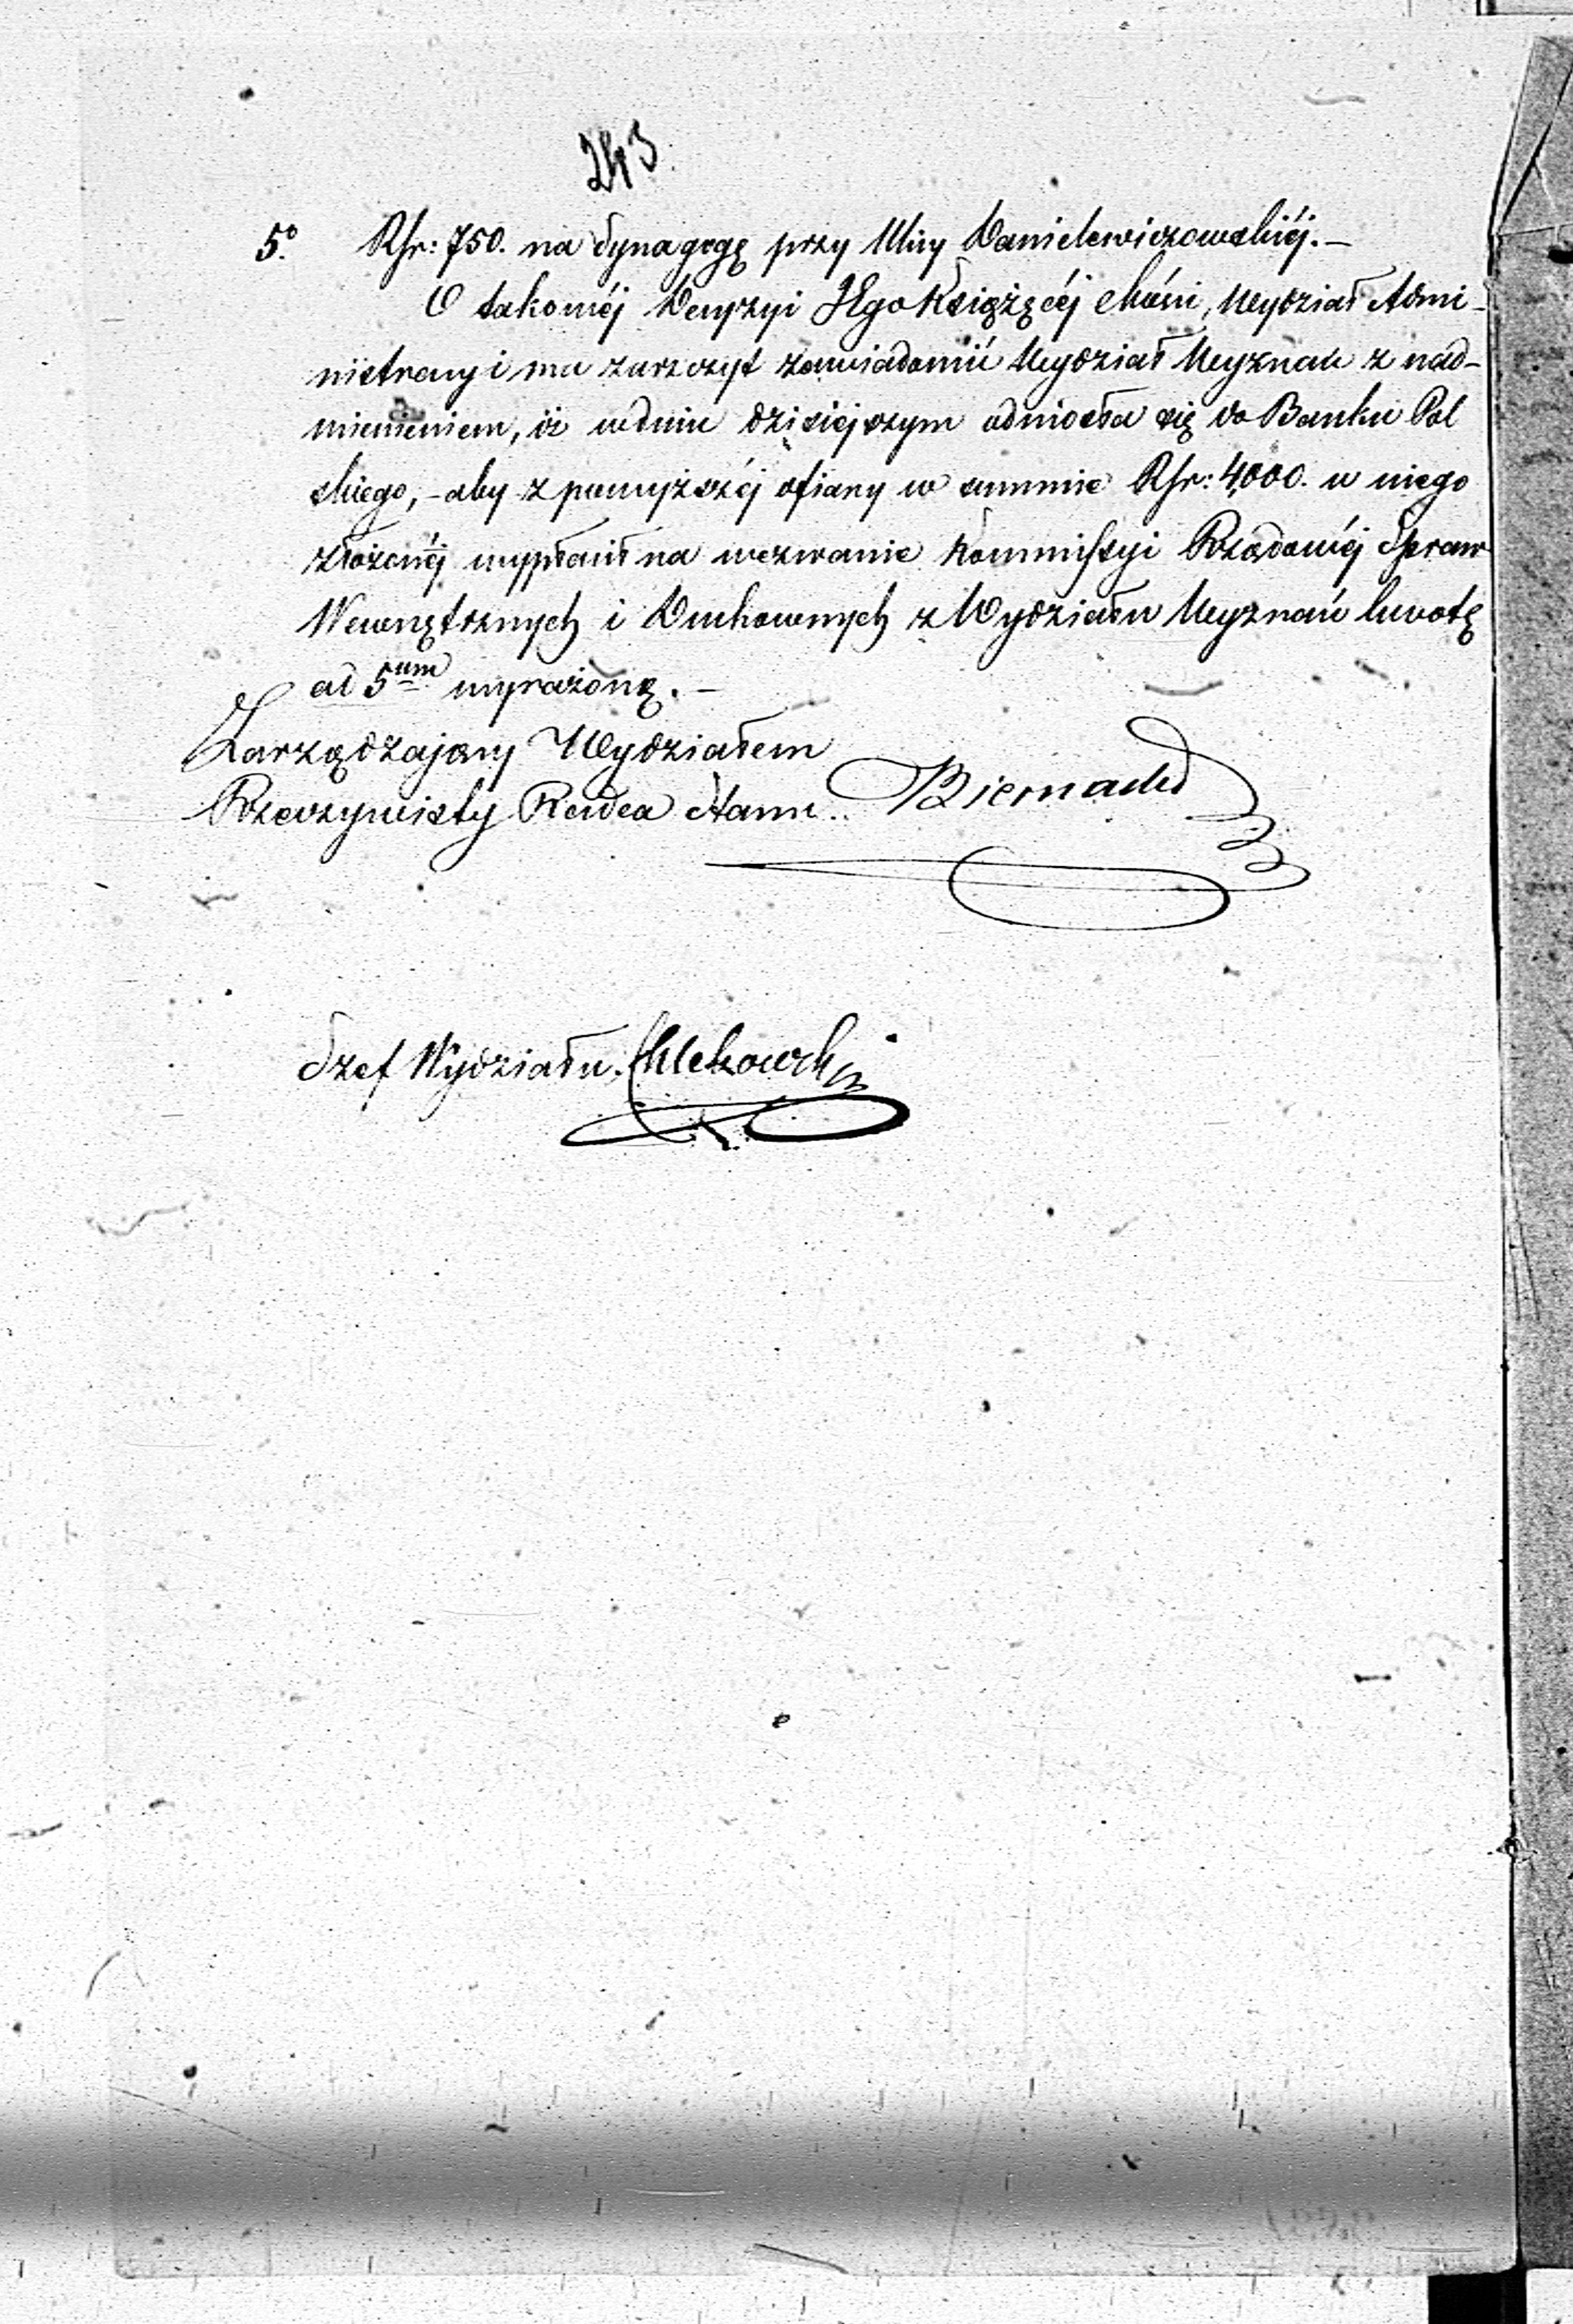 243
5º Rsr: 750. na Synagogę przy Ulicy Danielewiczowskiéj. —
O takowéj Decyzyi JEgo Książęcéj Mości, Wydział Admi-
nistracyi ma zaszczyt zawiadomić Wydział Wyznań z nad-
mienieniem, iż w dniu dzisiejszym odniosła się do Banku Pol
skiego, - aby z powyższéj ofiary w summie Rsr: 4,000. u niego
złożonéj wypłacił na wezwanie Kommissyi Rządowéj Spraw
Wewnętrznych i Duchownych z Wydziału Wyznań kwotę
ad 5um wyrażoną. —
Zarządzający Wydziałem
Rzeczywisty Radca Stanu. Biernacki
Szef Wydziału.